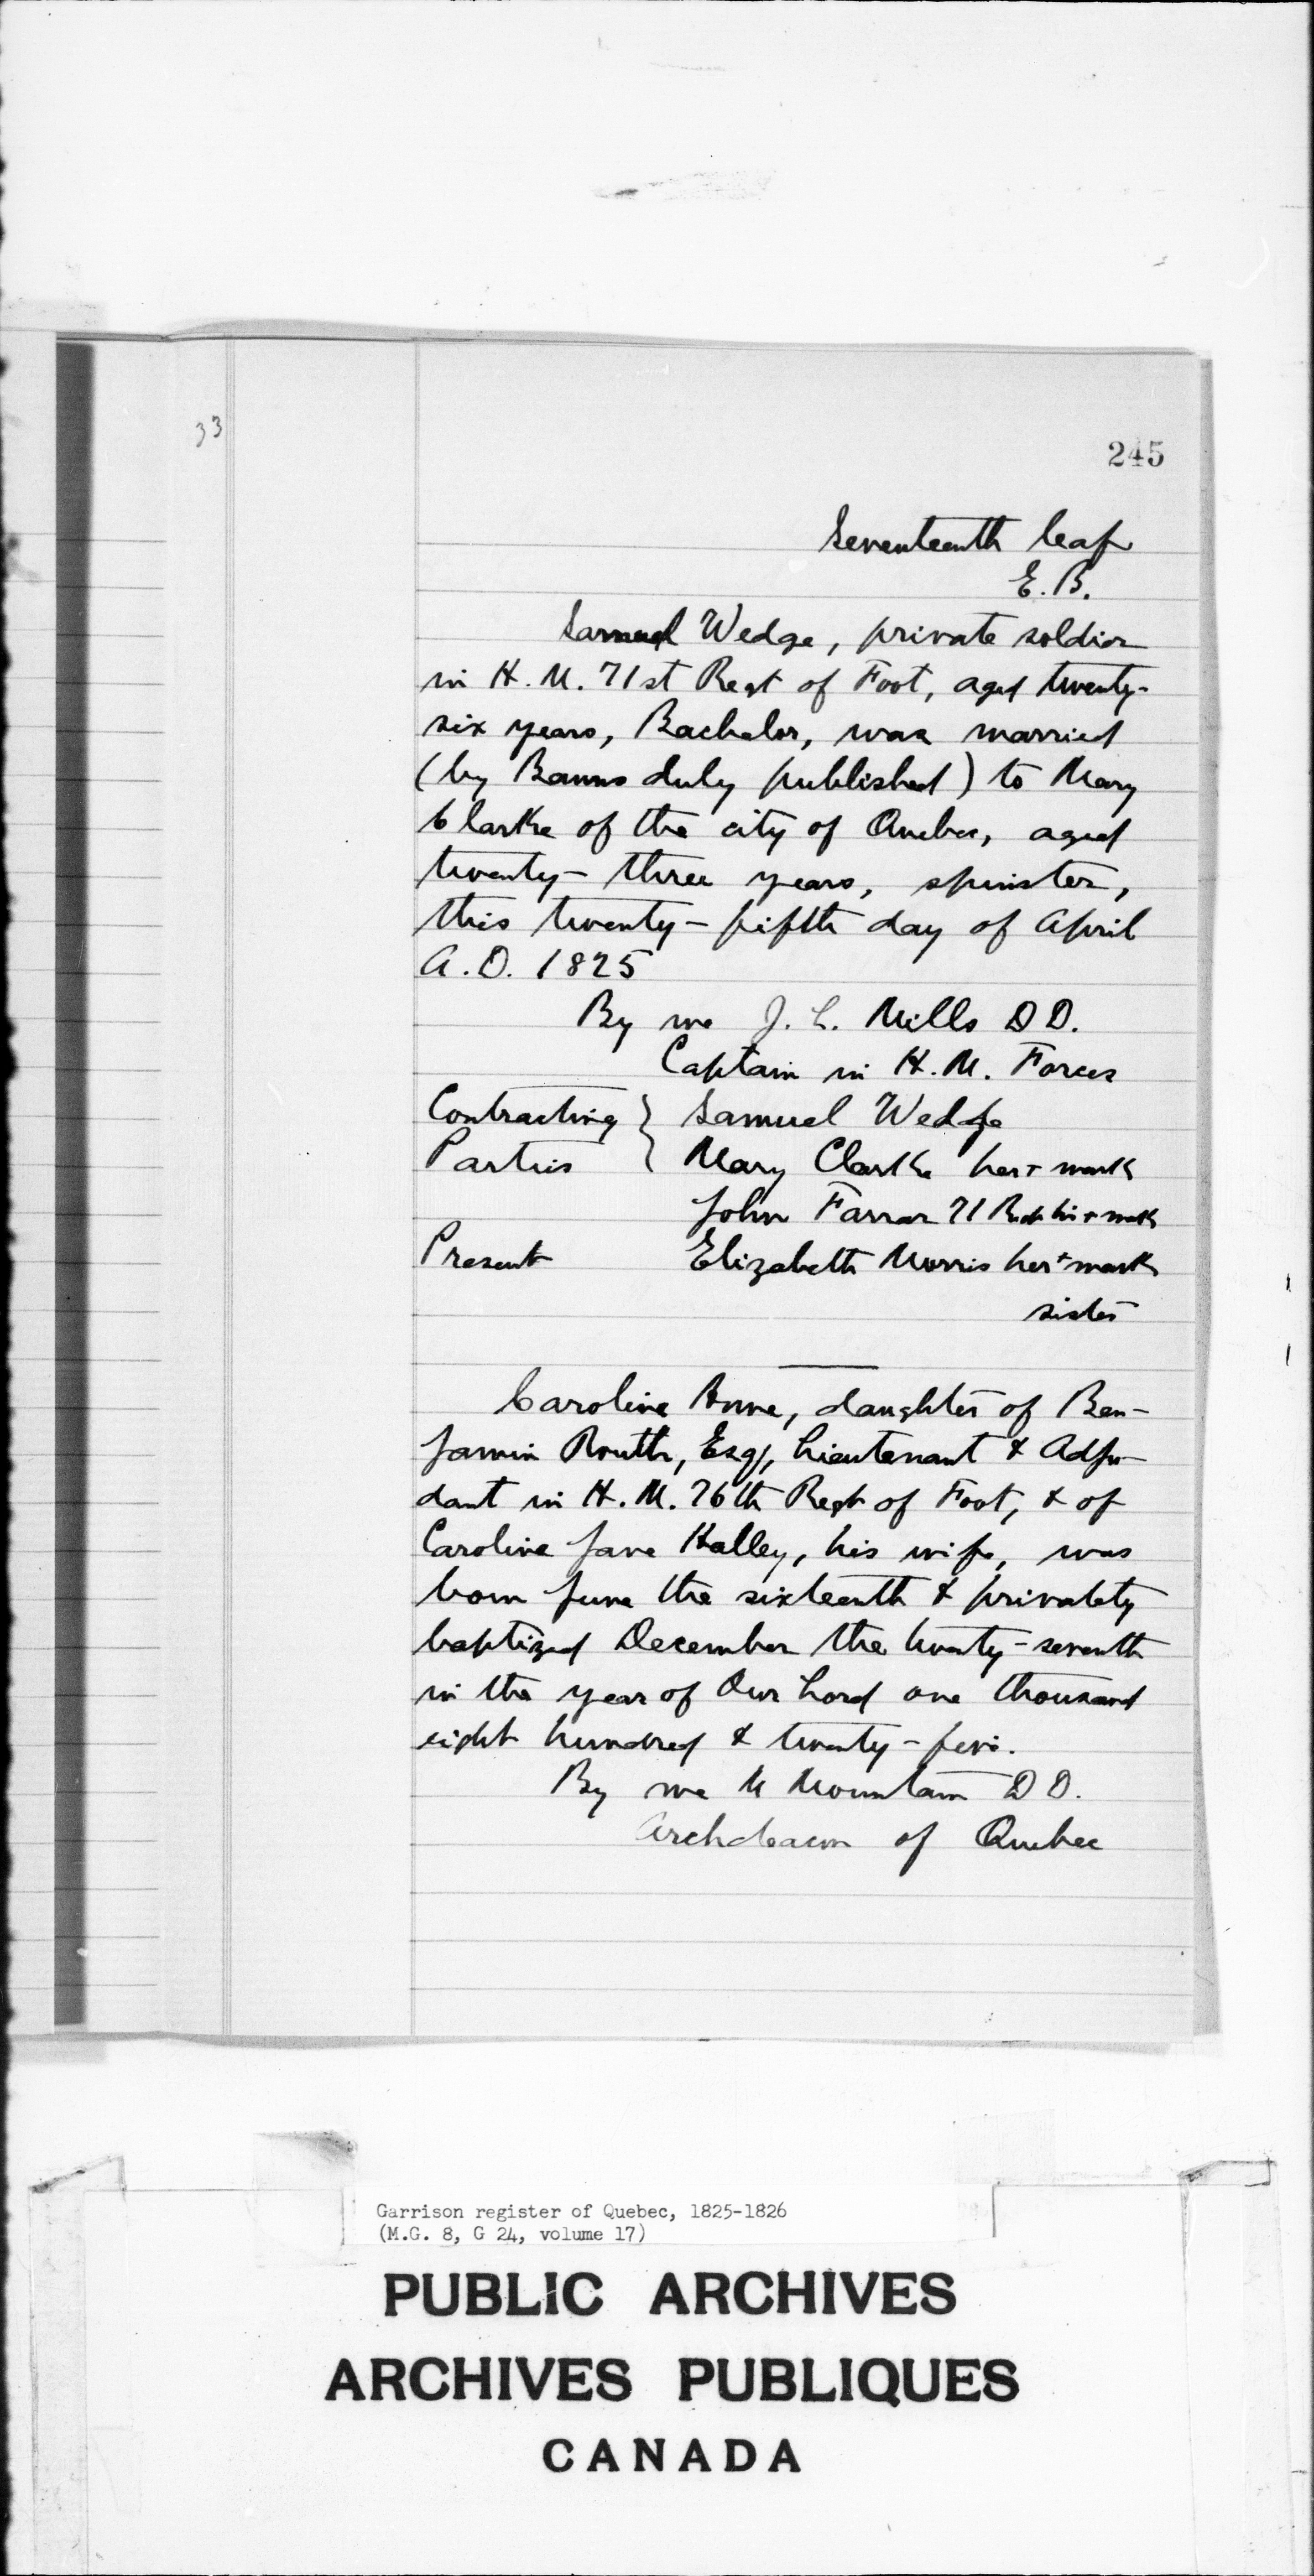 33
245
Seventeenth leaf
E. B.
Samuel Wedge, private soldier
in H. M. 71st Regt of Foot, aged twenty-
six years, Bachelor, was married
(by Banns duly published) to Mary
Clarke of the city of Quebec, aged
twenty-three years, spinster,
this twenty-fifth day of April
A.D. 1825
By me J. L. Mills D D.
Captain in H. M. Forces
Contracting } Samuel Wedge
Parties { Mary Clarke her + mark
John Farrar 71 Regt his + mark
Present Elizabeth Morris her + mark
sister
Caroline Anne, daughter of Ben-
jamin Routh, Esq, Lieutenant & Adju-
dant in H. M. 76th Regt of Foot, & of
Caroline Jane Halley, his wife, was
born June the sixteenth & privately
baptized December the twenty-seventh
in the year of Our Lord one thousand
eight hundred & twenty-five.
By me Mountain D D.
Archdeacon of Quebec
Garrison register of Quebec, 1825-1826
(M.G. 8, G 24, volume 17)
PUBLIC ARCHIVES
ARCHIVES PUBLIQUES
CANADA